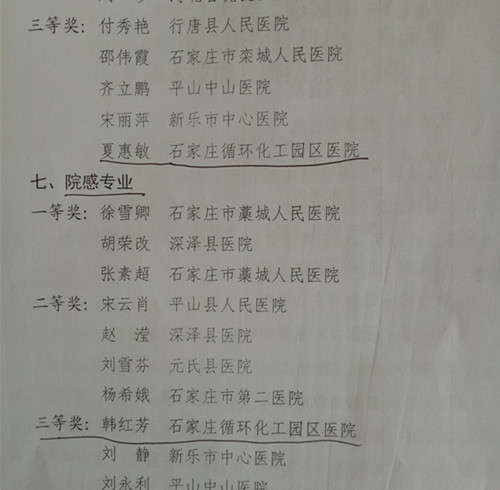 三等奖：付秀艳 行唐县人民医院
邵伟霞 石家庄市栾城人民医院
齐立鹏 平山中山医院
宋丽萍 新乐市中心医院
夏惠敏 石家庄循环化工园区医院
七、院感专业
一等奖：徐雪卿 石家庄市藁城人民医院
胡荣改 深泽县医院
张素超 石家庄市藁城人民医院
二等奖：宋云肖 平山县人民医院
赵 滢 深泽县医院
刘雪芬 元氏县医院
杨希娥 石家庄市第二医院
三等奖：韩红芳 石家庄循环化工园区医院
刘 静 新乐市中心医院
刘永利 平山中山医院